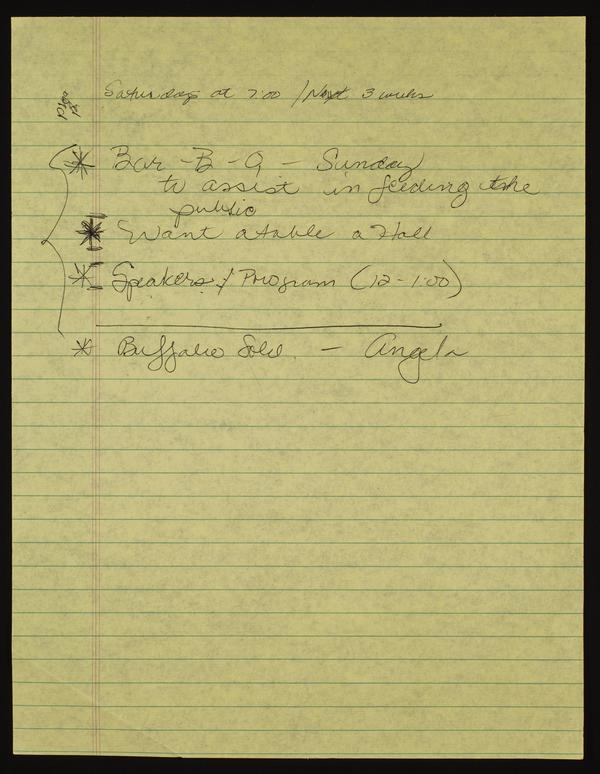 Saturday at 7:00 / Next 3 weeks
* Bar-B-Q - Sunday
to assist in feeding the
public
* Want a table a Hall
* Speakers / Program (12-1:00)
* Buffalo Sold. - Angela